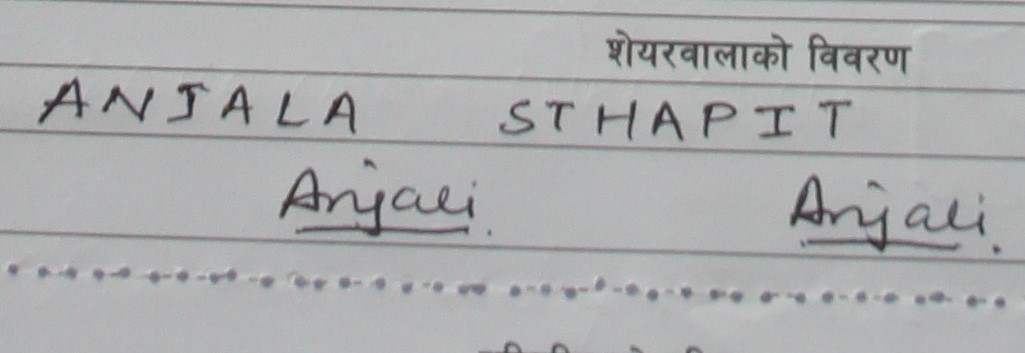 शेयरवालाको विवरण
ANJALA STHAPIT
Anjali. Anjali.